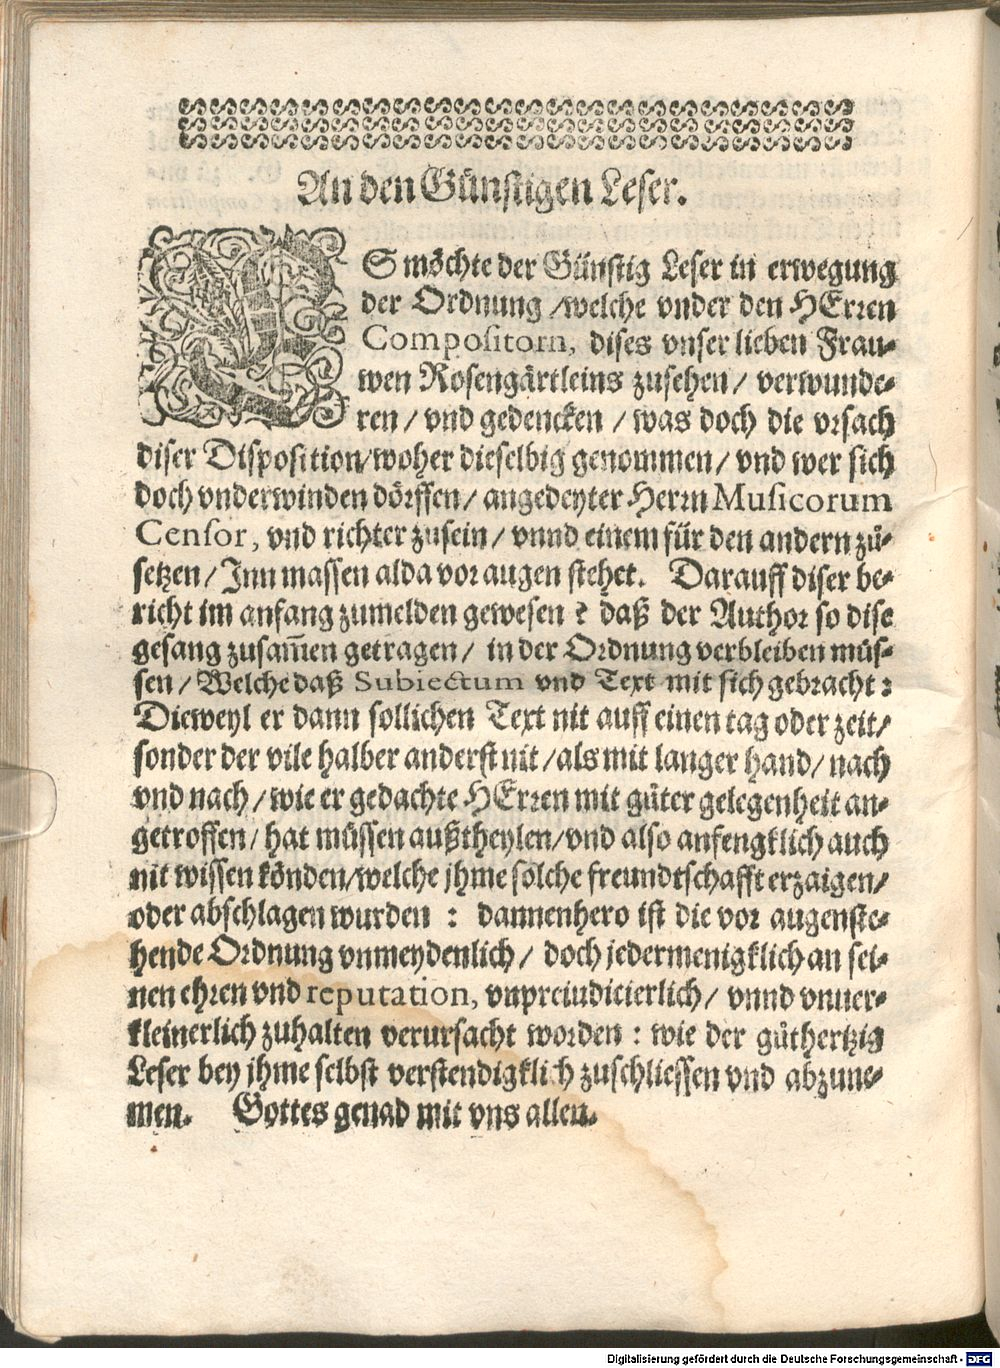 An den Günstigen Leser.
ES möchte der Günstig Leser in erwegung
der Ordnung / welche vnder den HErren
Compositorn, dises vnser lieben Frau-
wen Rosengärtleins zusehen / verwunde-
ren / vnd gedencken / was doch die vrsach
diser Disposition / woher dieselbig genommen / vnd wer sich
doch vnderwinden dörffen / angedeyter Herrn Musicorum
Censor, vnd richter zusein / vnnd einem für den andern zů-
setzen / Inn massen alda vor augen stehet. Darauff diser be-
richt im anfang zumelden gewesen : daß der Author so dise
gesang zusam̃en getragen / in der Ordnung verbleiben müs-
sen / Welche daß Subiectum vnd Text mit sich gebracht :
Dieweyl er dann sollichen Text nit auff einen tag oder zeit /
sonder der vile halber anderst nit / als mit langer hand / nach
vnd nach / wie er gedachte HErren mit gůter gelegenheit an-
getroffen / hat müssen außtheylen / vnd also anfengklich auch
nit wissen könden / welche jhme solche freundtschafft erzaigen /
oder abschlagen wurden : dannenhero ist die vor augenste-
hende Ordnung vnmeydenlich / doch jedermenigklich an sei-
nen ehren vnd reputation, vnpreiudicierlich / vnnd vnuer-
kleinerlich zuhalten verursacht worden : wie der gůthertzig
Leser bey jhme selbst verstendigklich zuschliessen vnd abzune-
men. Gottes genad mit vns allen.
Digitalisierung gefördert durch die Deutsche Forschungsgemeinschaft - DFG